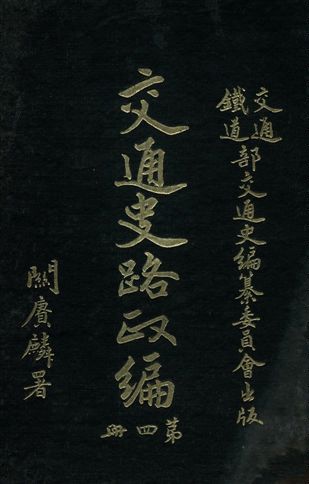 交通鐵道部交通史編纂委員會出版
交通史路政編
第四冊
關賡麟署